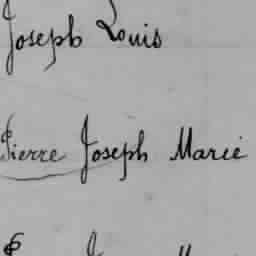 Joseph Louis
Pierre Joseph Marie